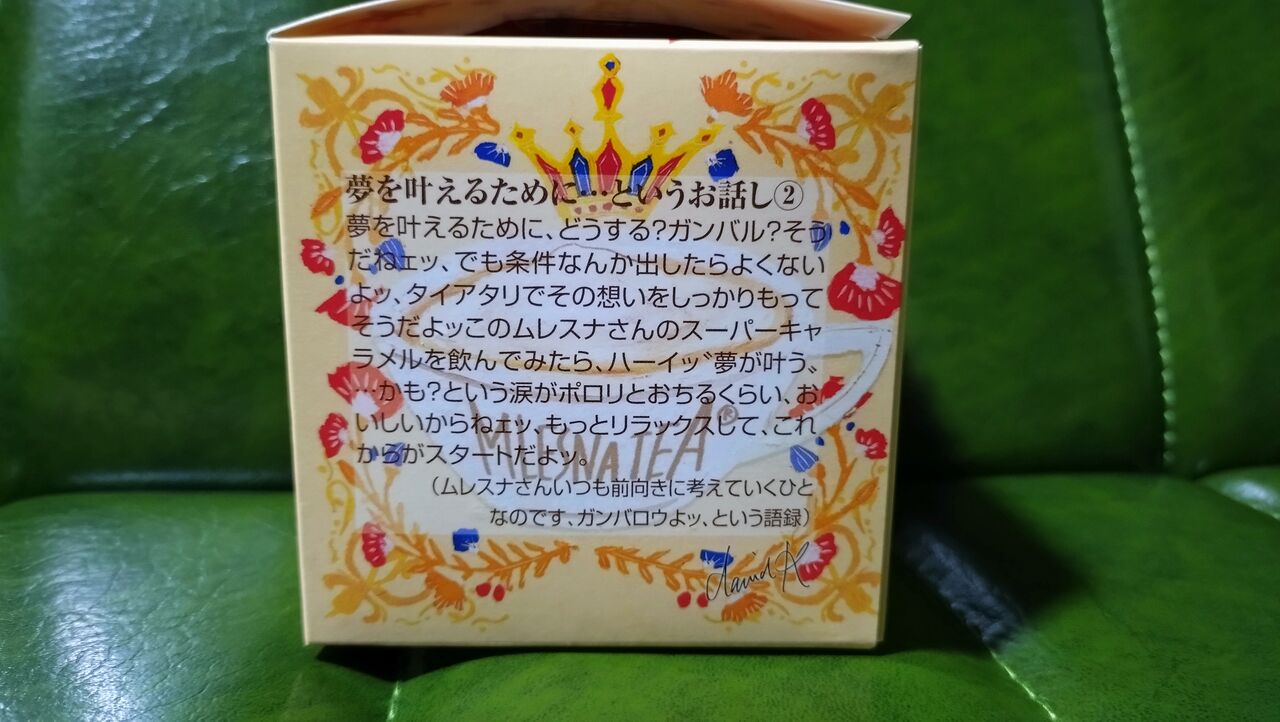 夢を叶えるために…というお話し②
夢を叶えるために、どうする?ガンバル?そう
だねェッ、でも条件なんか出したらよくない
よッ、タイアタリでその想いをしっかりもって
そうだよッこのムレスナさんのスーパーキャ
ラメルを飲んでみたら、ハーイッ〝夢が叶う〟
…かも?という涙がポロリとおちるくらい、お
いしいからねェッ、もっとリラックスして、これ
からがスタートだよッ。
MLESNA TEA®
(ムレスナさんいつも前向きに考えていくひと
なのです、ガンバロウよッ、という語録)
david K